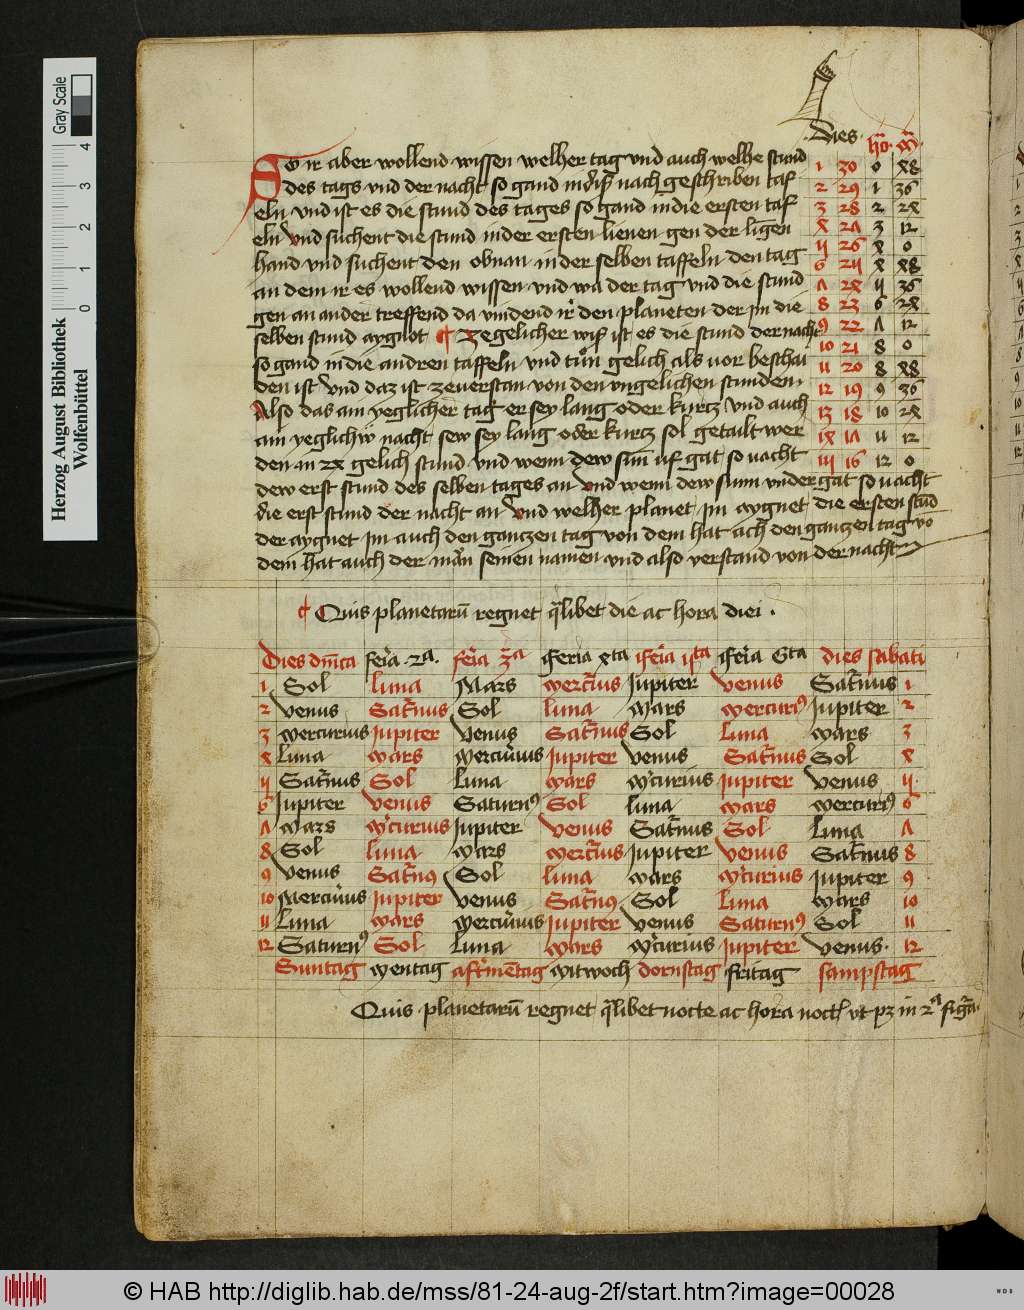 Dies ho. m̄.
So ir aber wollend wissen welher tag vnd auch welhe stund
des tags vnd der nacht so gand in diß nach geschriben taf
eln vnd ist es die stund des tages so gand in die ersten taf
eln vnd suchent die stund in der ersten lienen gen der lingen
hand vnd suchent den obnan in der selben taffeln den tag
an dem ir es wollend wissen vnd wa der tag vnd die stund
gen an ander treffend da vindend ir den planeten der im die
selben stund aygnot ¶ Zegelicher wiß ist es die stund der nacht
so gand in die andren taffeln vnd tun gelich als vor beschai
den ist vnd daz ist zeuerstan von den vngelichen stunden
Also das ain yeglicher tag er sey lang oder kurcz vnd auch
ain yeglichw nacht sew sey lang oder kurcz sol getailt wer
den in 2ꝝ gelich stund vnd wenn dew sunn uf gat so vacht
dew erst stund des selben tages an vnd wenn dew sunn vndergat so vacht
die erst stund der nacht an vnd welher planet im aygnet die ersten stūd
der aygnet im auch den ganczen tag von dem hat auch den ganczen tag vō
dem hat auch der man seinen namen vnd also verstand von der nacht
1 30 0 48
2 29 1 36
3 28 2 24
4 27 3 12
5 26 4 0
6 25 4 48
7 24 5 36
8 23 6 24
9 22 7 12
10 21 8 0
11 20 8 48
12 19 9 36
13 18 10 24
14 17 11 12
15 16 12 0
¶ Quis planetarū regnet q̄libet die ac hora diei .
Dies dn̄ica feria 2a. feria 3a feria 4ta feria 5ta feria 6ta dies sabati
1 Sol luna Mars mercurius Jupiter venus Saturnus 1
2 venus Saturnus Sol luna mars mercurius Jupiter 2
3 mercurius Jupiter venus Saturnus Sol luna mars 3
4 luna mars mercurius Jupiter venus Saturnus Sol 4
5 Saturnus Sol luna mars mercurius Jupiter venus 5
6 Jupiter venus Saturnus Sol luna mars mercurius 6
7 mars mercurius Jupiter venus Saturnus Sol luna 7
8 Sol luna mars mercurius Jupiter venus Saturnus 8
9 venus Saturnus Sol luna mars mercurius Jupiter 9
10 Mercurius Jupiter venus Saturnus Sol luna mars 10
11 luna mars mercurius Jupiter venus Saturnus Sol 11
12 Saturnus Sol luna mars mercurius Jupiter venus 12
Suntag mentag aftermētag mitwoch dornstag fritag sampstag
Quis planetarū regnet q̄libet nocte ac hora noctis vt pꝫ in 2a figura
Herzog August Bibliothek
Wolfenbüttel
Gray Scale
0 1 2 3 4
© HAB http://diglib.hab.de/mss/81-24-aug-2f/start.htm?image=00028